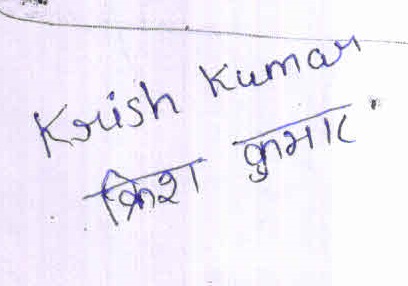 Krish Kumar
क्रिश कुमार